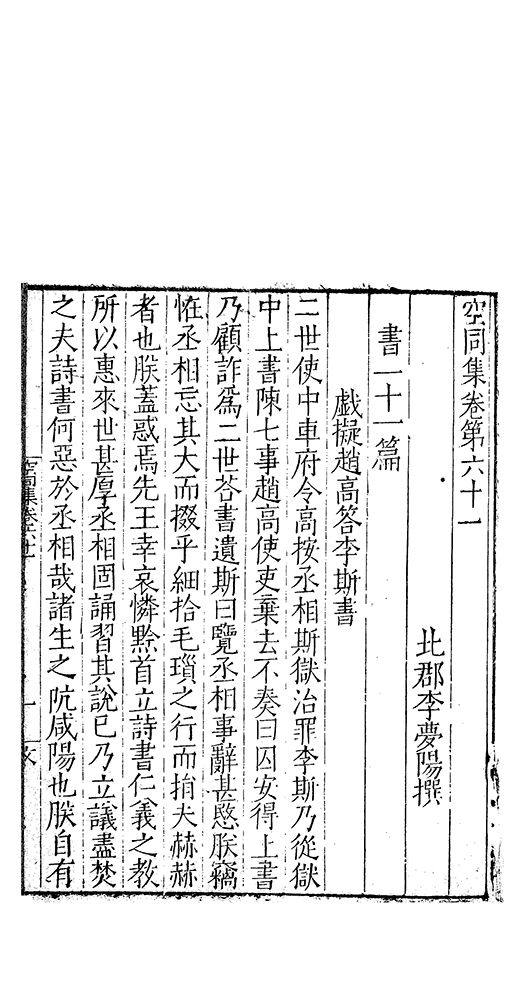 空同集卷第六十一
北郡李夢陽撰
書一十一篇
戲擬趙高答李斯書
二世使中車府令高按丞相斯獄治罪李斯乃從獄
中上書陳七事趙高使吏棄去不奏曰囚安得上書
乃顧詐爲二世荅書遺斯曰覽丞相事辭甚愍朕竊
恠丞相忘其大而掇乎細拾毛瑣之行而捐夫赫赫
者也朕蓋惑焉先王幸哀憐黔首立詩書仁義之教
所以惠來世甚厚丞相固誦習其說已乃立議盡焚
之夫詩書何惡於丞相哉諸生之阬咸陽也朕自有
空同集卷六十一
一